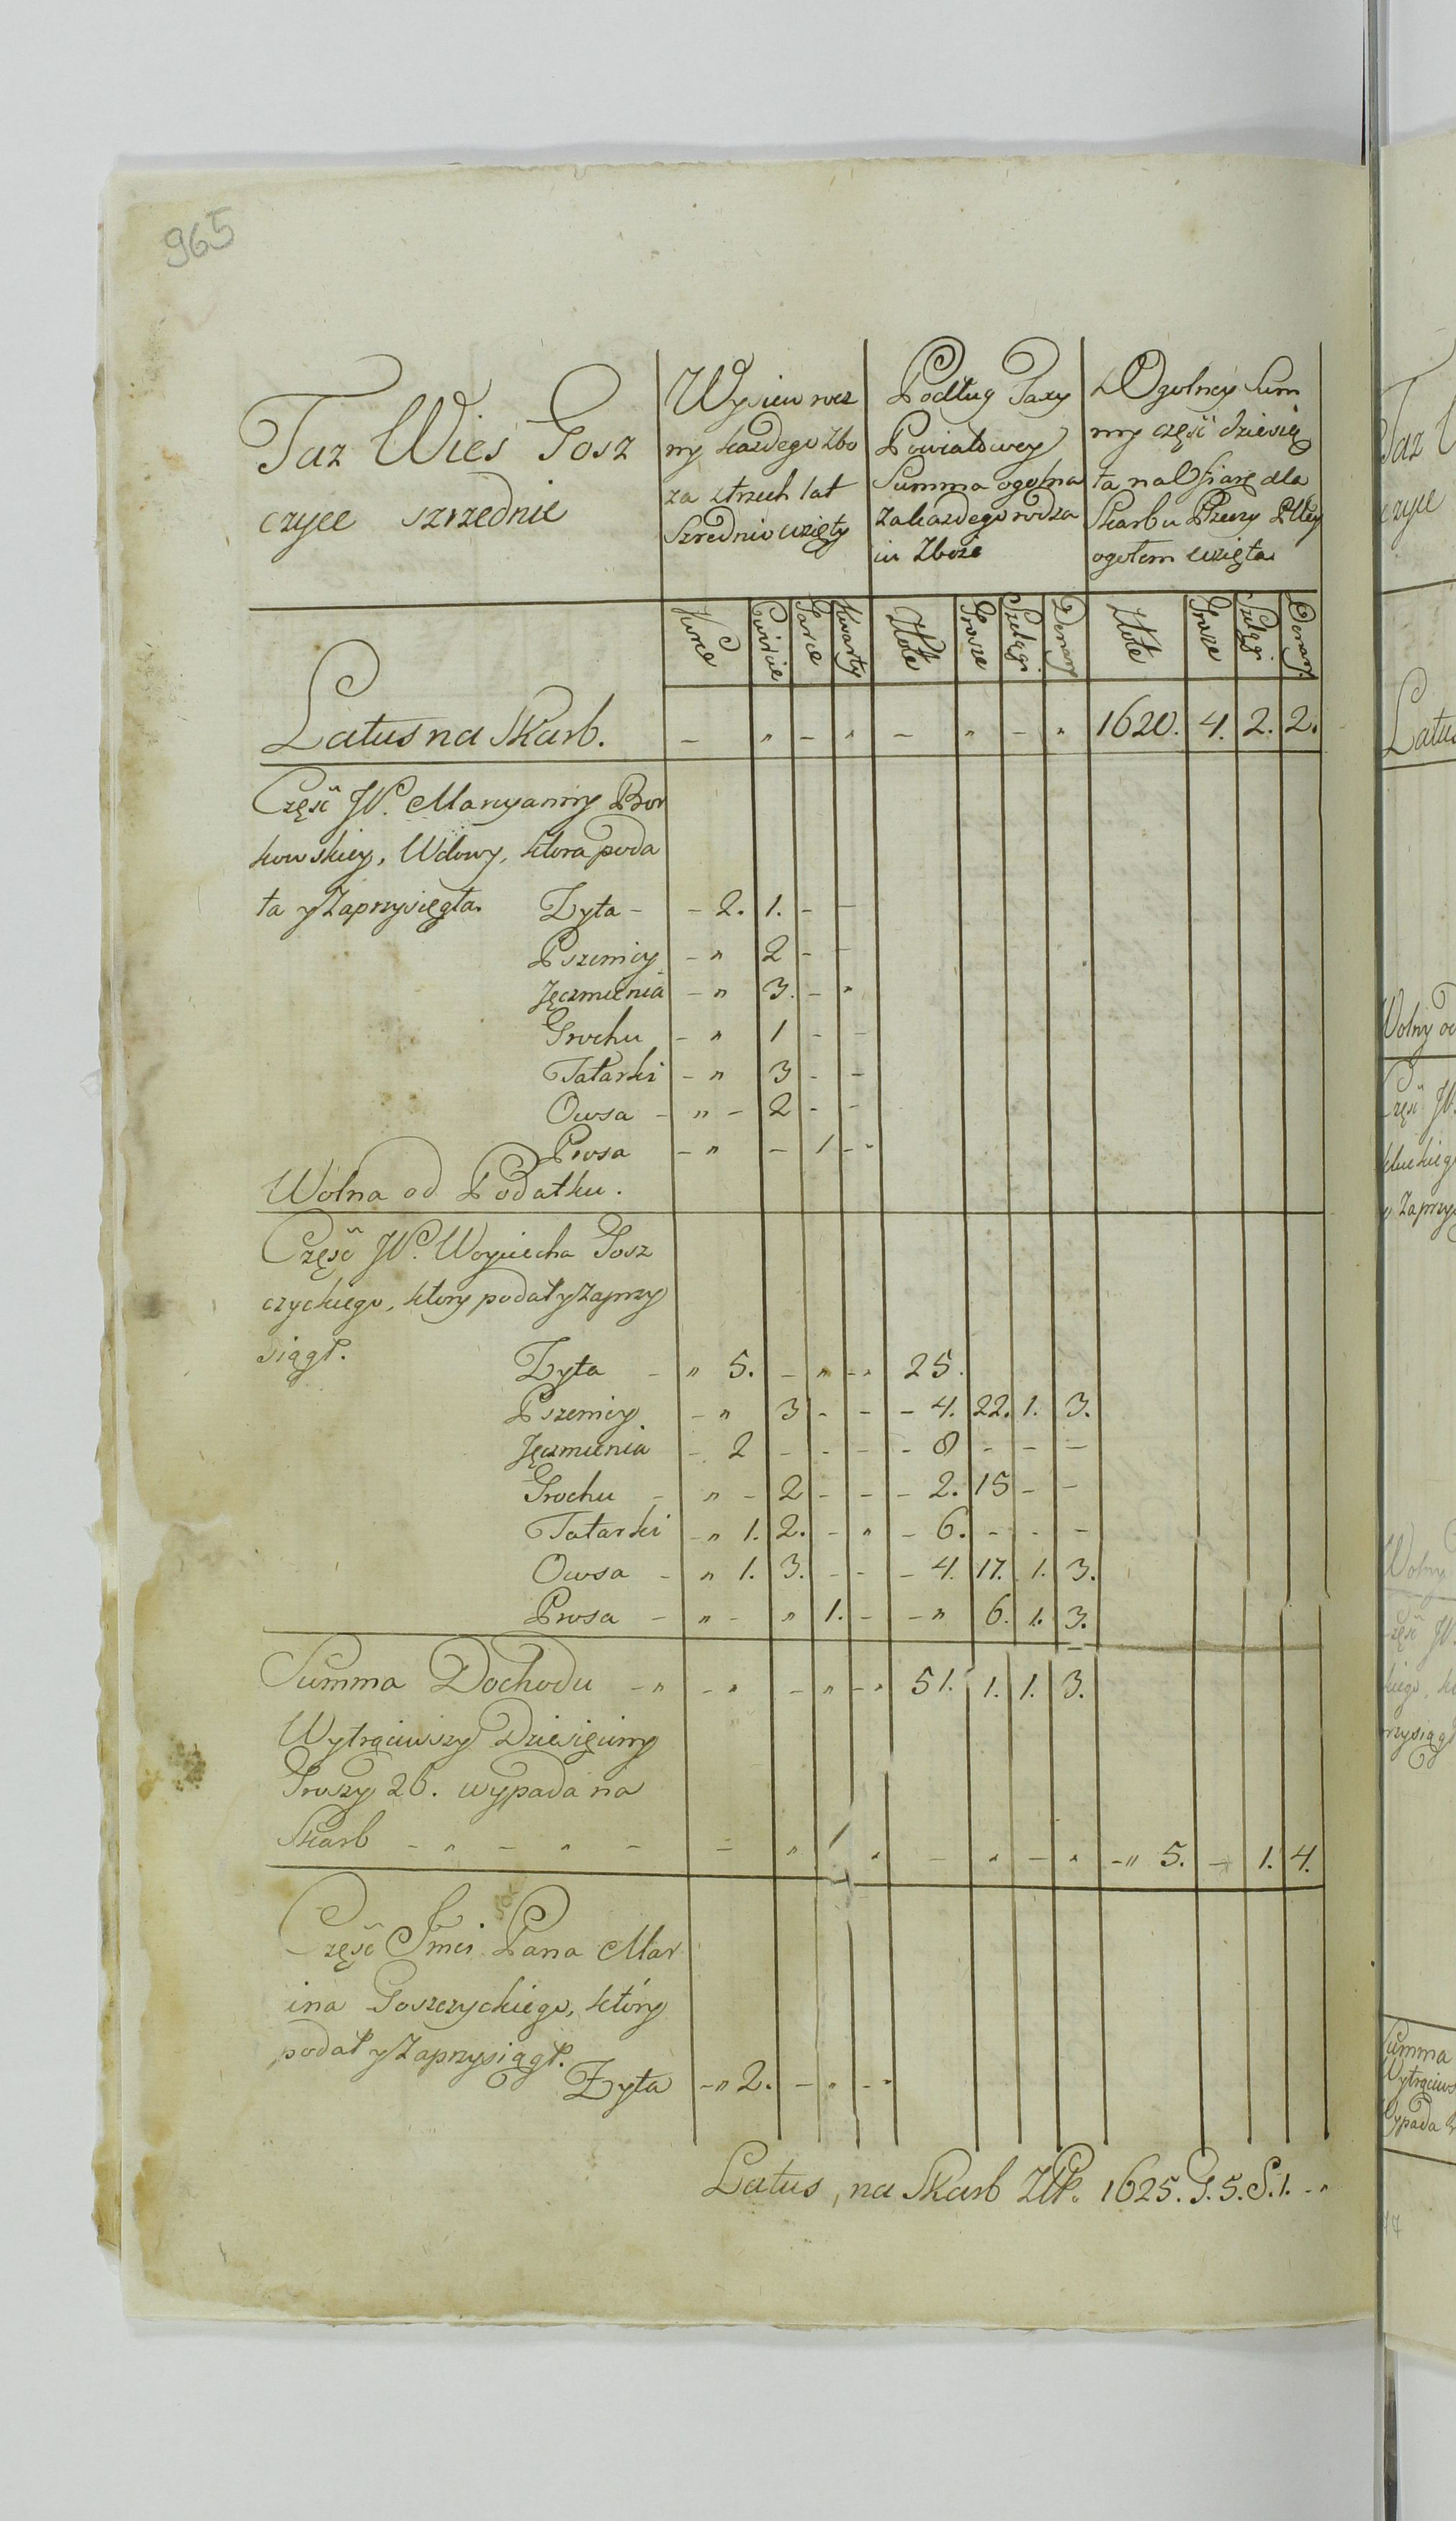 965
Taz Wies Gosz
czyce szrzednie
Wysiew rocz
ny każdego zbo
za ztrzech lat
Szrednio wzięty
Podług Taxy
Powiatowey
Summa ogolna
Zakazdego rodza
iu Zboża
Z Ogolney Sum
my część dziesią
ta na Ofiarę dla
Skarbu Rzeczy Pltey
ogołem wzięta
Korce Cwircie Garce Kwarty Złote Grosze Szelągi Denary Złote Grosze Szelągi Denary
Latus na Skarb. - " - " - " - " 1620. 4. 2. 2.
Część JP. Maryanny Bor
kowskiey, Wdowy, ktora poda
ła y Zaprzysięgła. Zyta - - 2. 1. - -
Pszenicy - " 2 - -
Jęczmienia - " 3. - "
Grochu - " 1 - -
Tatarki - " 3 - -
Owsa - " - 2 - -
Prosa - " - 1 - -
Wolna od Podatku.
Część JP. Woyciecha Gosz
czyckiego, ktory podał y Zaprzy
siągł.
Zyta - " 5. - " - " 25.
Pszenicy - " 3 - - - 4. 22. 1. 3.
Jęczmienia - 2 - - - - 8 - - -
Grochu - " - 2 - - - 2. 15 - -
Tatarki - " 1. 2. - " - 6. - - -
Owsa - " 1. 3. - - - 4. 17. 1. 3.
Prosa - " - " 1. - - " 6. 1. 3.
Summa Dochodu - " - " - " - " 51. 1. 1. 3.
Wytrąciwszy Dziesięciny
Groszy 26. wypada na
Skarb - " - " - - " " - " - " - " 5. - 1. 4.
Część Jmci Pana Mar
cina Goszczyckiego, ktory
podał y Zaprzysiągł.
Zyta - " 2. - " - "
Latus, na Skarb Złł. 1625. G. 5. S. 1. - "